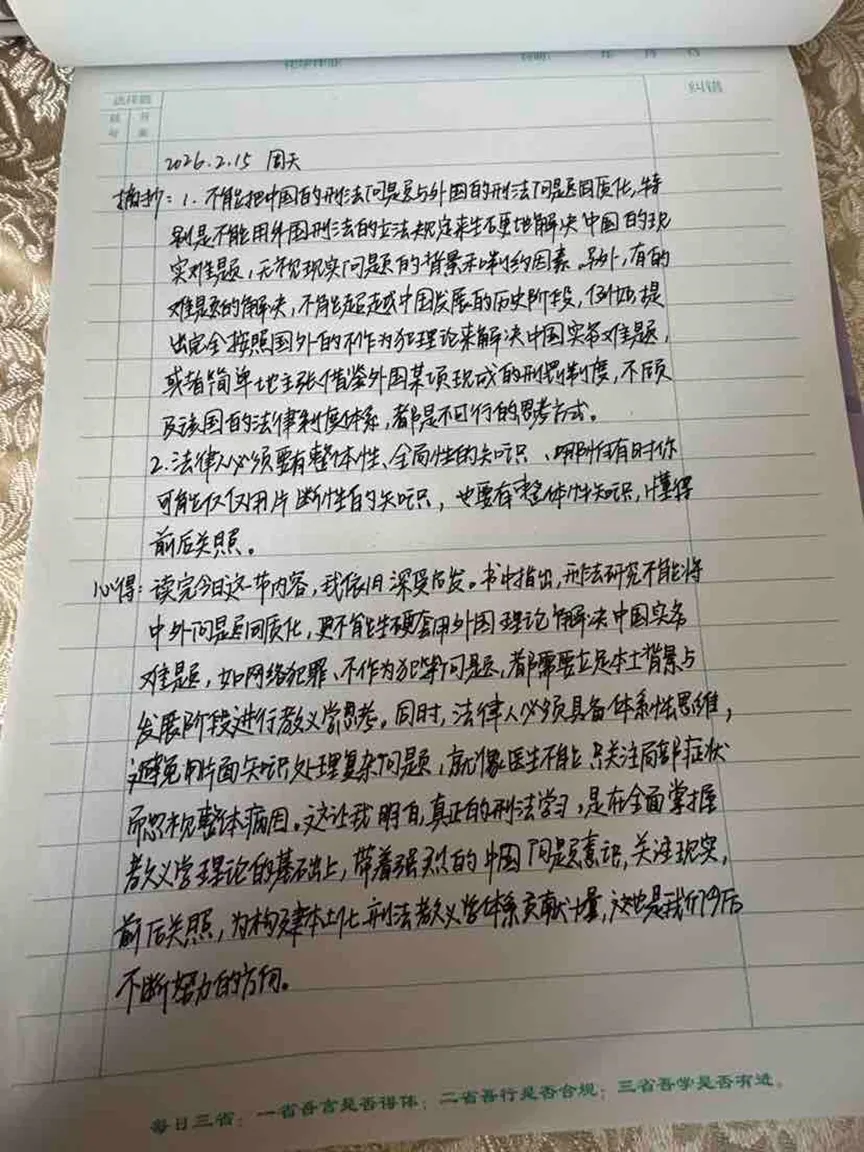 化学作业
年 月 日
选择题
纠错
题号 答案
2026.2.15 周天
摘抄：1. 不能把中国的刑法问题与外国的刑法问题同质化，特
别是不能用外国刑法的立法规定来生硬地解决中国的现
实难题，无视现实问题的背景和制约因素。另外，有的
难题的解决，不能超越中国发展的历史阶段，例如提
出完全按照国外的不作为犯理论来解决中国实务难题，
或者简单地主张借鉴外国某项现成的刑罚制度，不顾
及该国的法律制度体系，都是不可行的思考方式。
2. 法律人必须要有整体性、全局性的知识、哪怕有时你
可能仅仅用片断性的知识，也要有整体性知识，懂得
前后关照。
心得：读完今日这一节内容，我依旧深受启发。书中指出，刑法研究不能将
中外问题同质化，更不能生硬套用外国理论解决中国实务
难题，如网络犯罪、不作为犯等问题，都需要立足本土背景与
发展阶段进行教义学思考。同时，法律人必须具备体系性思维，
避免用片面知识处理复杂问题，就像医生不能只关注局部症状
而忽视整体病因。这让我明白，真正的刑法学习，是在全面掌握
教义学理论的基础上，带着强烈的中国问题意识，关注现实，
前后关照，为构建本土化刑法教义学体系贡献力量，这也是我们今后
不断努力的方向。
每日三省：一省吾言是否得体；二省吾行是否合规；三省吾学是否有进。